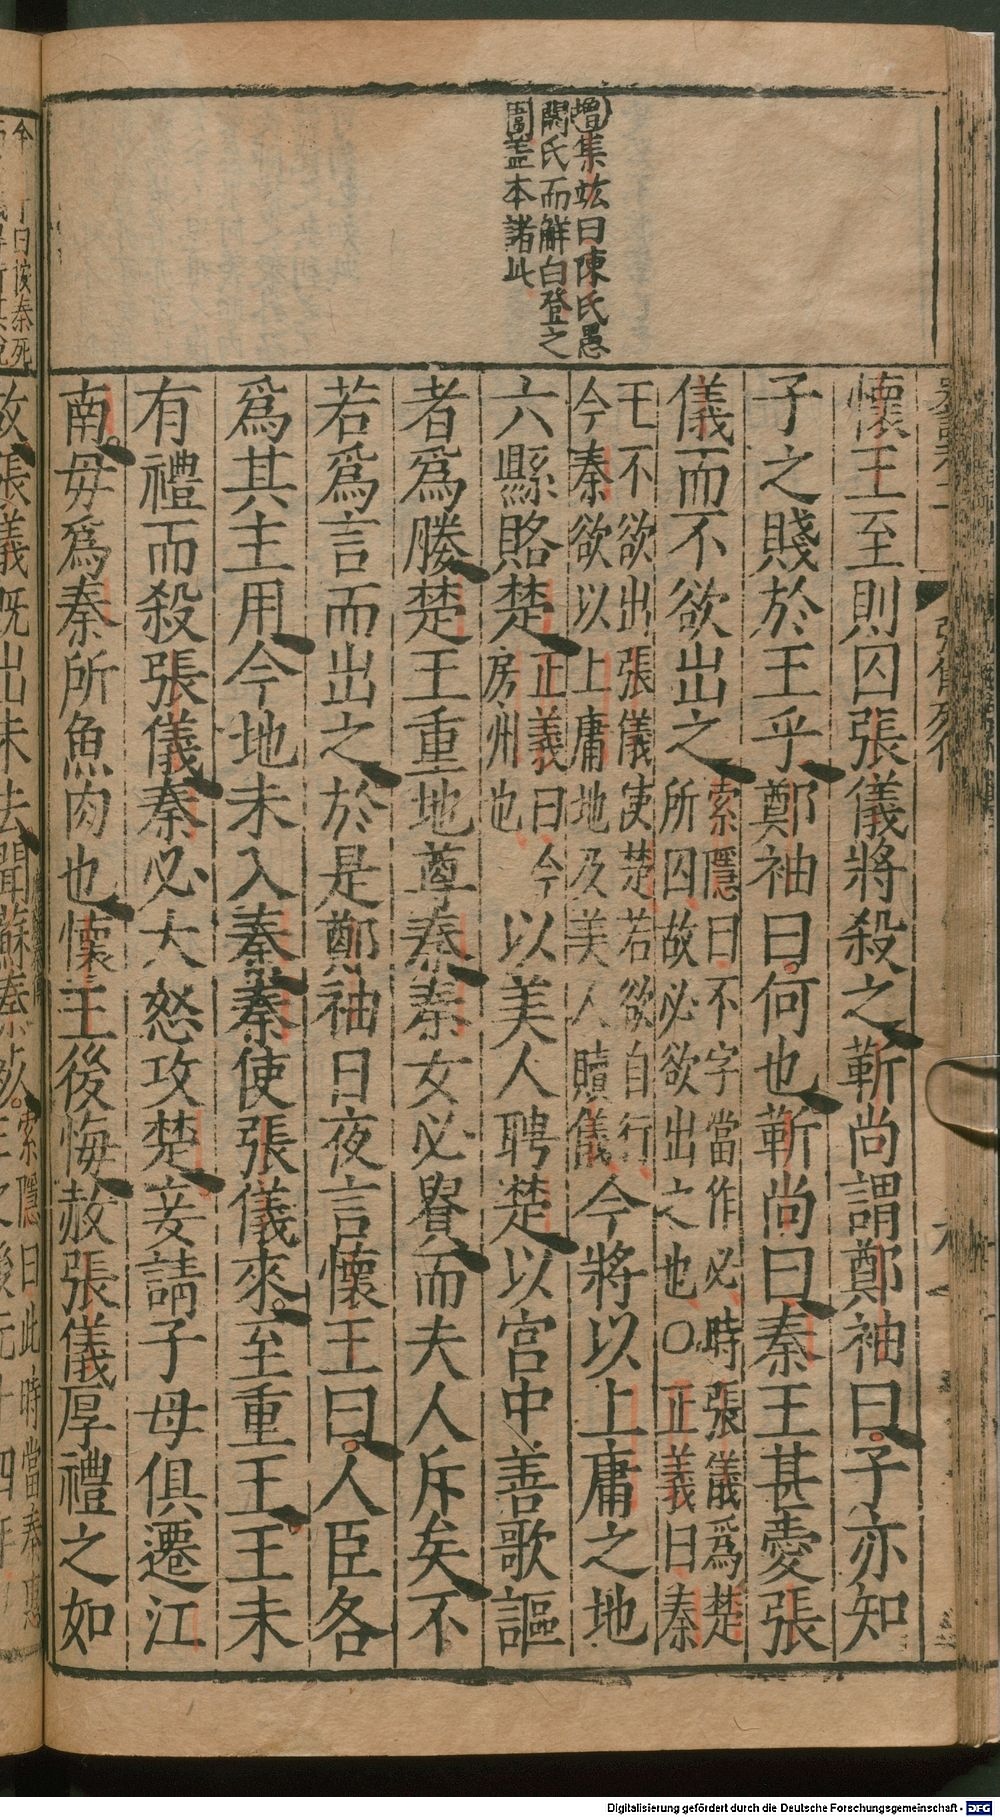 增集竑曰陳氏愚
閼氏而解白登之
圍葢本諸此
懷王至則囚張儀將殺之靳尚謂鄭袖曰子亦知
子之賤於王乎鄭袖曰何也靳尚曰秦王甚愛張
儀而不欲出之索隱曰不字當作必時張儀爲楚所囚故必欲出之也○正義曰秦
王不欲出張儀使楚若欲自行今秦欲以上庸地及美人贖儀今將以上庸之地
六縣賂楚正義曰今房州也以美人聘楚以宮中善歌謳
者爲媵楚王重地尊秦秦女必貴而夫人斥矣不
若爲言而出之於是鄭袖日夜言懷王曰人臣各
爲其主用今地未入秦秦使張儀來至重王王未
有禮而殺張儀秦必大怒攻楚妾請子母俱遷江
南毋爲秦所魚肉也懷王後悔赦張儀厚禮之如
故張儀既出未去聞蘇秦死索隱曰此時當秦惠
Digitalisierung gefördert durch die Deutsche Forschungsgemeinschaft - DFG